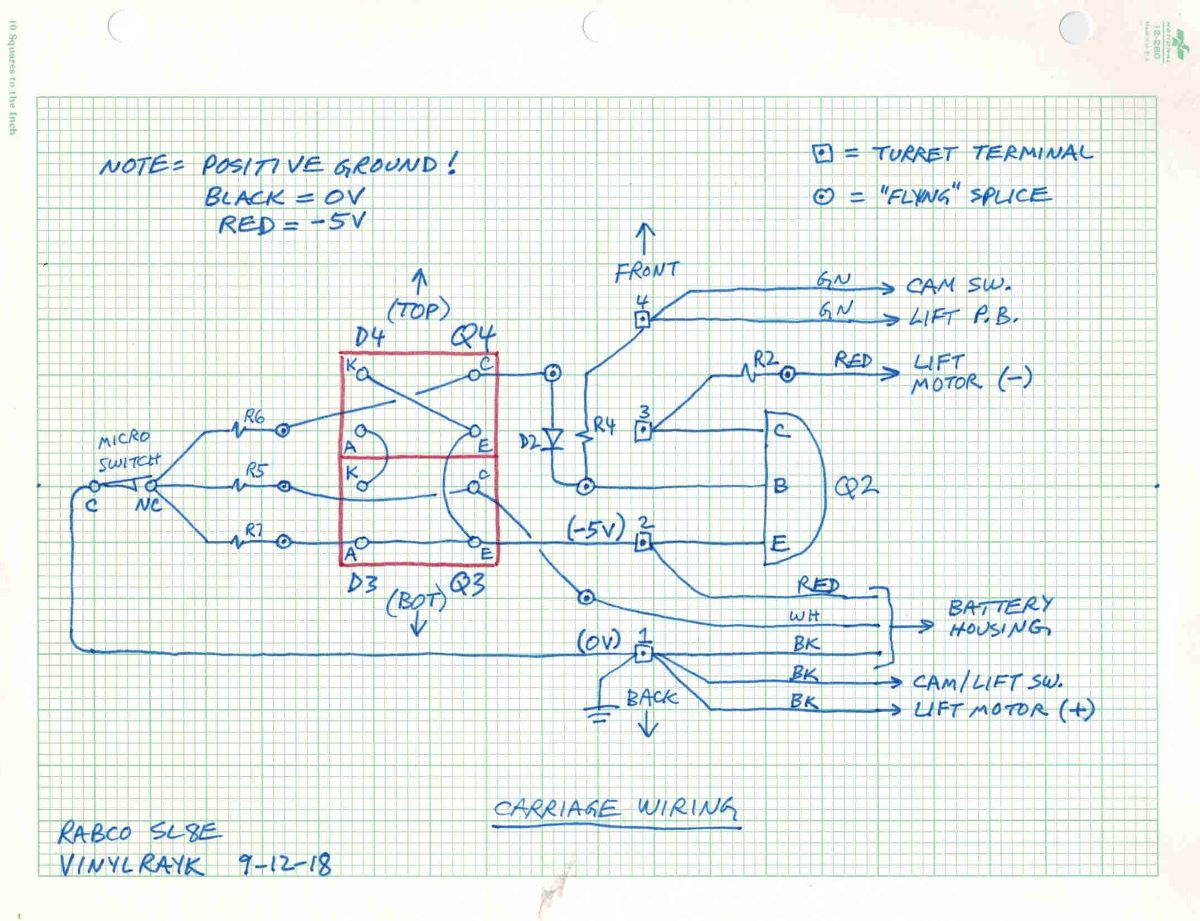 10 Squares to the Inch
NATIONAL
12-280
NOTE= POSITIVE GROUND!
BLACK = 0V
RED = -5V
= TURRET TERMINAL
= "FLYNG" SPLICE
FRONT
(TOP)
4
GN
CAM SW.
GN
LIFT P.B.
D4
Q4
K
C
R2
RED
LIFT
MOTOR (-)
R6
3
C
R4
D2
A
E
MICRO
SWITCH
K
C
R5
B
Q2
C
NC
R7
(-5V)
2
E
A
E
D3
(BOT)
Q3
RED
BATTERY
HOUSING
WH
(0V)
1
BK
BK
CAM/LIFT SW.
BACK
BK
LIFT MOTOR (+)
CARRIAGE WIRING
RABCO SL8E
VINYLRAYK 9-12-18